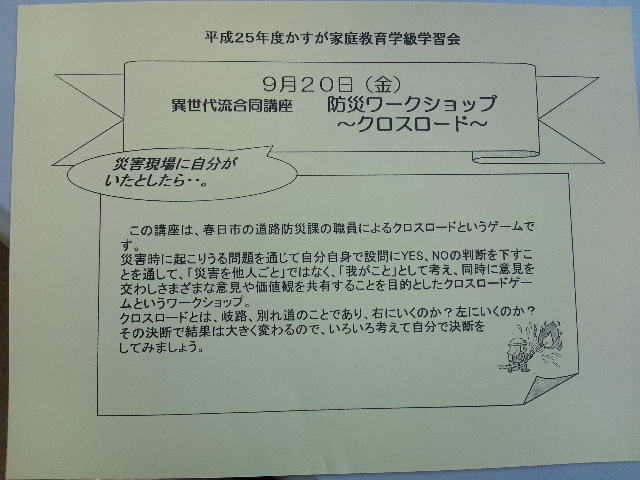 平成25年度かすが家庭教育学級学習会
9月20日（金）
異世代流合同講座　防災ワークショップ
～クロスロード～
災害現場に自分が
いたとしたら・・。
この講座は、春日市の道路防災課の職員によるクロスロードというゲームで
す。
災害時に起こりうる問題を通じて自分自身で設問にYES、NOの判断を下すこ
とを通して、「災害を他人ごと」ではなく、「我がこと」として考え、同時に意見を
交わしさまざまな意見や価値観を共有することを目的としたクロスロードゲー
ムというワークショップ。
クロスロードとは、岐路、別れ道のことであり、右にいくのか？左にいくのか？
その決断で結果は大きく変わるので、いろいろ考えて自分で決断を
してみましょう。